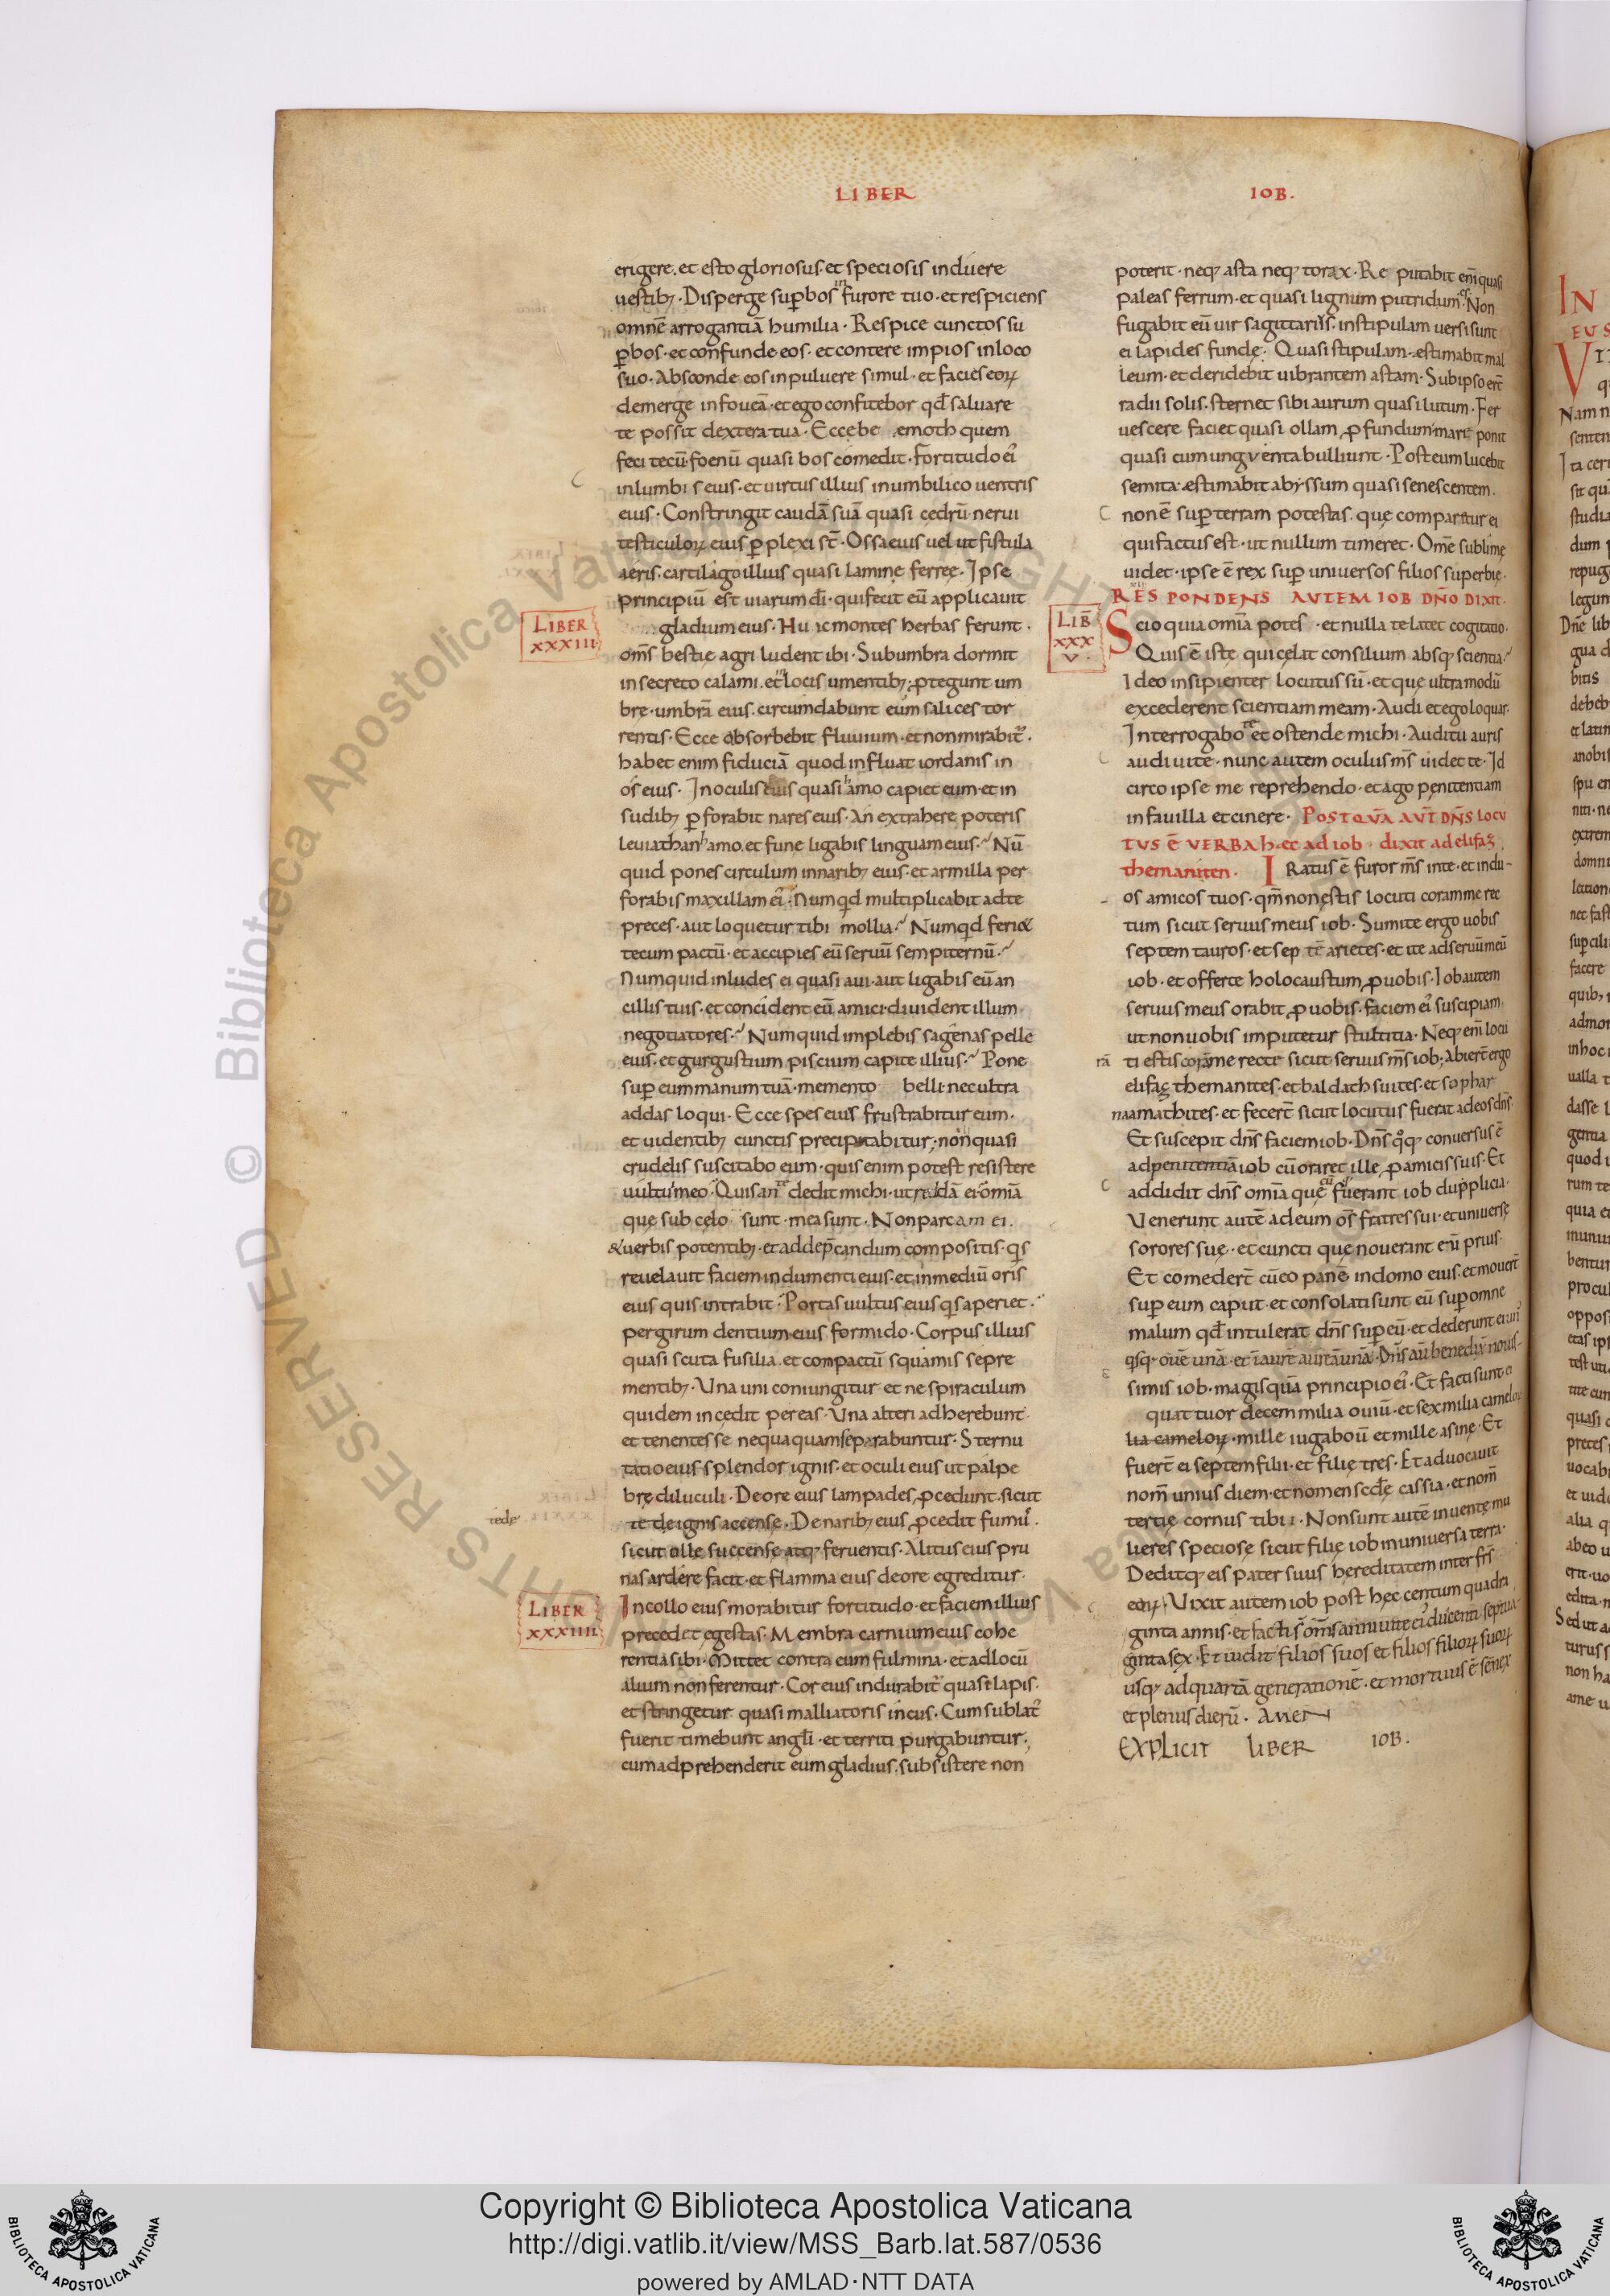 LIBER
erigere. et esto gloriosus. et speciosis induere
uestibꝫ. Disperge sup̄bos in furore tuo. et respiciens
omnē arrogantiā humilia. Respice cunctos su
ꝑbos. et confunde eos. et contere impios in loco
suo. Absconde eos in puluere simul. et facies eoꝝ
demerge in foueā. et ego confitebor qđ saluare
te possit dextera tua. Ecce be emoth quem
feci tecū. foenū quasi bos comedit. Fortitudo ei᾽
in lumbis eius. et uirtus illius in umbilico uentris
eius. Constringit caudā suā quasi cedrū. nerui
testiculoꝝ eius ꝑplexi st̄. Ossa eius uel ut fistula
aeris. cartilago illius quasi lamine ferreę. Ipse
principiū est uiarum dī. qui fecit eū applicauit
LIBER
XXXIII
gladium eius. Hu ic montes herbas ferunt.
om̄s bestię agri ludent ibi. Sub umbra dormit
in secreto calami. et in locis umentibꝫ. ꝓtegunt um
bre. umbrā eius. circumdabunt eum salices tor
rentis. Ecce absorbebit fluuium. et non mirabit᾽.
habet enim fiduciā quod influat iordanis in
os eius. In oculis eius quasi hamo capiet eum. et in
sudibꝫ ꝑforabit nares eius. An extrahere poteris
leuiathan hamo. et fune ligabis linguam eius. Nū
quid pones circulum in naribꝫ eius. et armilla per
forabis maxillam ei᾽. Numqd multiplicabit ad te
preces. aut loquetur tibi mollia. Numqd feri&
tecum pactū. et accipies eū seruū sempiternū.
Numquid inludes ei quasi aui. aut ligabis eū an
cillis tuis. et concident eū amici. diuident illum
negotiatores. Numquid implebis sagenas pelle
eius. et gurgustium piscium capite illius. Pone
sup̄ eum manum tuā. memento belli. nec ultra
addas loqui. Ecce spes eius frustrabitur eum.
et uidentibꝫ cunctis precipitabitur. non quasi
crudelis suscitabo eum. quis enim potest resistere
uultui meo. Quis ante dedit michi. ut reddā ei. omīa
quę sub cęlo sunt. mea sunt. Non parcam ei.
& uerbis potentibꝫ. et ad dep̄candum compositis. qs
reuelauit faciem indumenti eius. et in mediū oris
eius quis intrabit. Portas uultus eius qs aperiet.
per girum dentium eius formido. Corpus illius
quasi scuta fusilia. et compactū squamis se pre
mentibꝫ. Una uni coniungitur et ne spiraculum
quidem incedit per eas. Una alteri adherebunt
et tenentes se nequaquam separabuntur. Sternu
tatio eius splendor ignis. et oculi eius ut palpe
brę diluculi. De ore eius lampades ꝓcedunt. sicut
tedę
te de ignis accense. De naribꝫ eius ꝓcedit fumus.
sicut olle succensę atqꝫ feruentis. Alitus eius pru
nas ardere facit. et flamma eius de ore egreditur.
LIBER
XXXIIII
In collo eius morabitur fortitudo. et faciem illius
precedet egestas. Membra carnium eius cohe
rentia sibi. Mittet contra eum fulmina. et ad locū
alium non ferentur. Cor eius indurabit᾽ quasi lapis.
et stringetur quasi malliatoris incus. Cum sublat᾽
fuerit timebunt angli. et territi purgabuntur.
cum adprehenderit eum gladius. subsistere non
IOB.
poterit. neqꝫ asta neqꝫ torax. Re putabit enī quasi
paleas ferrum. et quasi lignum putridum es. Non
fugabit eū uir sagittarius. in stipulam uersi sunt
ei lapides fundę. Quasi stipulam. estimabit mal
leum. et deridebit uibrantem astam. Sub ipso ert̄
radii solis. sternet sibi aurum quasi lutum. Fer
uescere faciet quasi ollam ꝓfundum mare ponit
quasi cum ungventa bulliunt. Post eum lucebit
semita. ęstimabit abyssum quasi senescentem.
non ē sup̄ terram potestas. quę comparetur ei
qui factus est. ut nullum timeret. Ome sublime
uidet. ipse ē rex sup̄ uniuersos filios superbię.
RESPONDENS AVTEM IOB DN̄O DIXIT.
LIB̄
XXX
V.
Scio quia omīa potes. et nulla te latet cogitatio.
Quis ē iste qui cęlat consilium absqꝫ scientia.
Ideo insipienter locutus sū. et quę ultra modū
excederent scientiam meam. Audi et ego loquar.
Interrogabo te et ostende michi. Auditu auris
audiui te. nunc autem oculus ms̄ uidet te. Id
circo ipse me reprehendo. et ago pęnitentiam
in fauilla et cinere. POSTQVĀ AVT̄ DN̄S LOCV
TVS Ē VERBA h. ec ad iob dixit ad elifaz
themaniten. IRatus ē furor ms̄ in te. et in du
os amicos tuos. qm̄ non estis locuti coram me rec
tum sicut seruus meus iob. Sumite ergo uobis
septem tauros. et septē arietes. et ite ad seruū meū
iob. et offerte holocaustum ꝓ uobis. Iob autem
seruus meus orabit ꝓ uobis. faciem ei᾽ suscipiam
ut non uobis imputetur stultitia. Neqꝫ enī locu
ti estis coram me recte sicut seruus ms̄ iob. Abiert̄ ergo
elifaz themanites. et baldath suites. et sophar
naamathites. et fecert̄ sicut locutus fuerat ad eos dn̄s.
Et suscepit dn̄s faciem iob. Dn̄s qoqꝫ conuersus ē
ad penitentiā iob cū oraret ille ꝓ amicis suis. Et
addidit dn̄s omīa quecū fuerant iob dupplicia.
Venerunt autē ad eum om̄s fratres sui. et uniuersę
sorores suę. et cuncti quę nouerant eū prius.
Et comedert̄ cū eo panē in domo eius. et mouert̄
sup̄ eum caput. et consolati sunt eū sup̄ omne
malum qđ intulerat dn̄s sup̄ eū. et dederunt ei un᾽
qsqꝫ ouē unā. et inaurē aureā unā. Dn̄s aū benedix̄ nouis
simis iob. magis quā principio ei᾽. Et facti sunt ei
quattuor decem milia ouiū. et sex milia camelo
lia cameloꝝ. mille iuga boū et mille asinę. Et
fuert̄ ei septem filii. et filię tres. Et aduocauit
nom̄ unius diem. et nomen scdę cassia. et nom̄
tertię cornus tibii. Non sunt autē inuentę mu
lieres speciosę sicut filię iob in uniuersa terra.
Deditqꝫ eis pater suus hereditatem inter frs̄
eoꝝ. Vixit autem iob post hec centum quadra
ginta annis. et facti s̄ om̄s anni uitę ei᾽ ducenti septua
ginta sex. Et uidit filios suos et filios filioꝝ suoꝝ
usqꝫ ad quartā generationē. et mortuus ē senex
et plenus dierū. AMEN
EXPLICIT LIBER IOB.
Copyright © Biblioteca Apostolica Vaticana
http://digi.vatlib.it/view/MSS_Barb.lat.587/0536
powered by AMLAD·NTT DATA
BIBLIOTECA APOSTOLICA VATICANA
BIBLIOTECA APOSTOLICA VATICANA